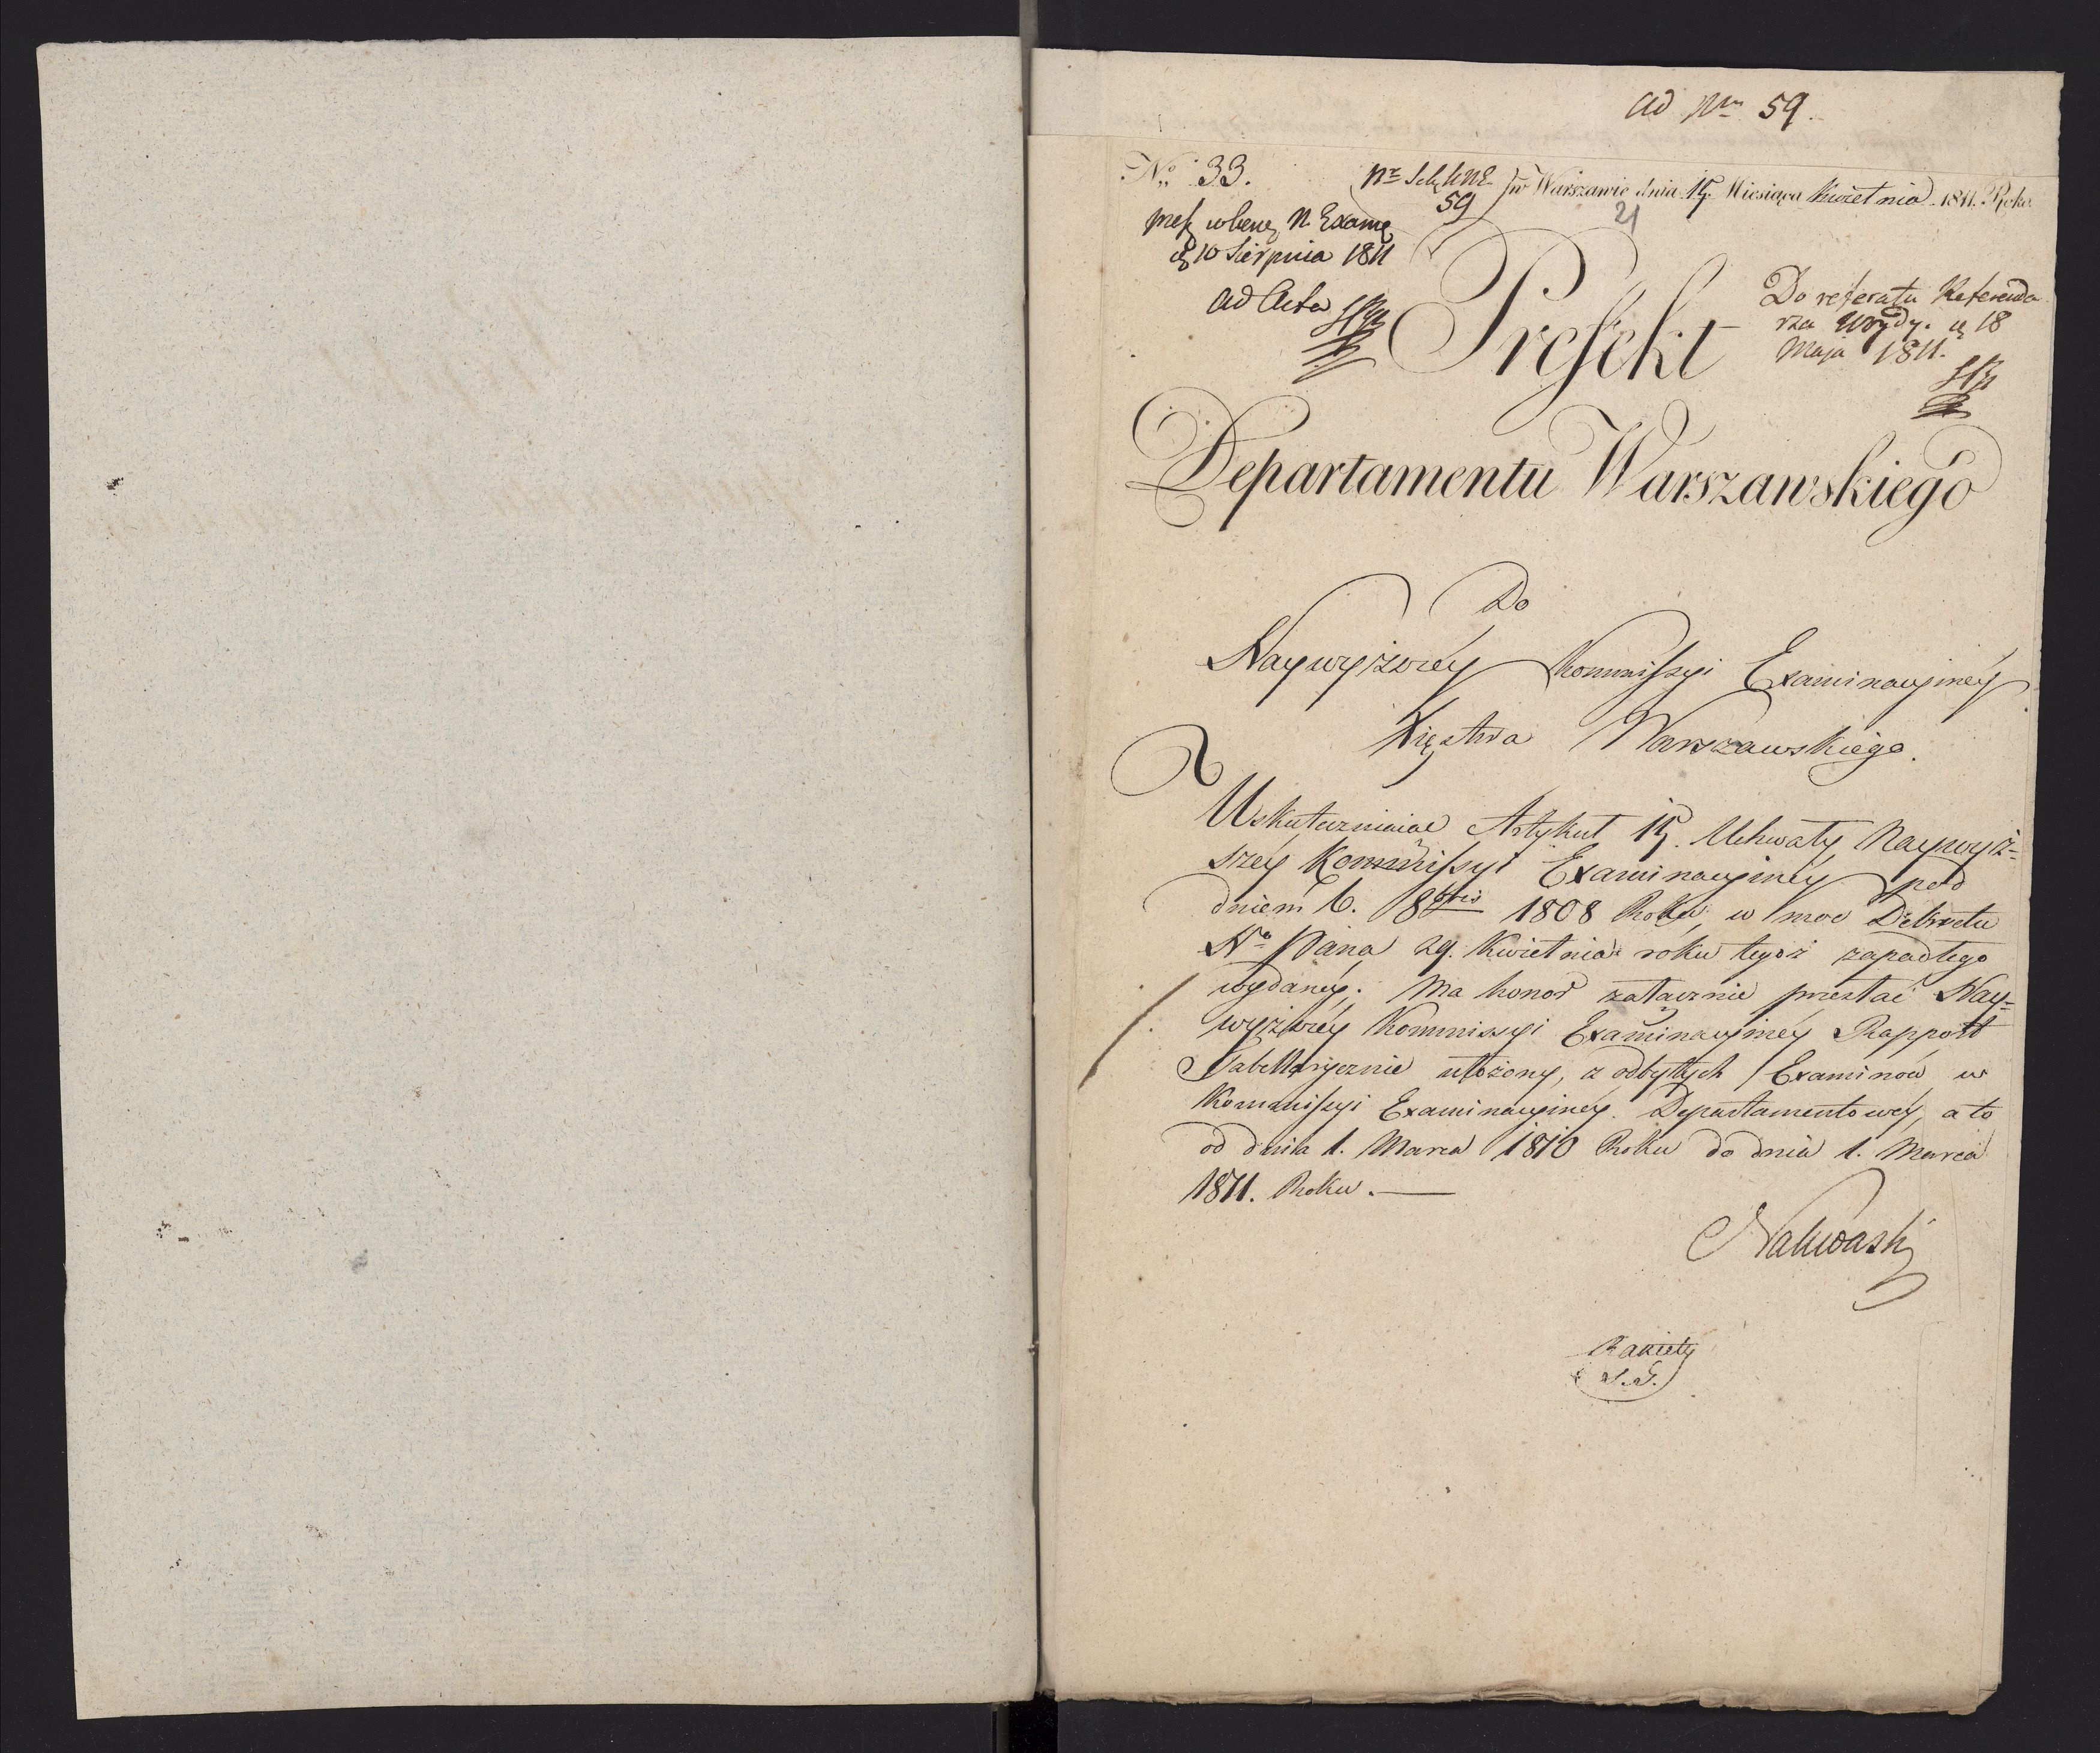 ad Nrm 59.
No 33.
59
w Warszawie dnia 15. Miesiąca Kwietnia 1811. Roku
21
N. Exam
10 Sierpnia 1811
ad Acta
Do referatu Referenda
rza 18
Maja 1811.
Prefekt
Departamentu Warszawskiego
Do
Naywyższey Kommissyi Examinacyiney
Xięstwa Warszawskiego.
Uskuteczniaiąc Artykuł 15. Uchwały Naywyż=
szey Kommissyi Examinacyiney pod
dniem 6. 8bris 1808 Roku, w moc Dekretu
No Pana 29. Kwietnia roku tegoż zapadłego
wydaney; Ma honor załącznie przesłać Nay=
wyższey Kommissyi Examinacyiney Rapport
Tabellarycznie ułożony, z odbytych Examinów w
Kommissyi Examinacyiney Departamentowey, a to
od dnia 1. Marca 1810 Roku do dnia 1. Marca
1811. Roku.
Nakwaski
Rakiety
S.G.